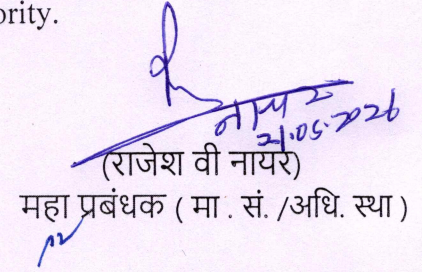 ority.
नायर
21.05.2026
(राजेश वी नायर)
महा प्रबंधक ( मा . सं. /अधि. स्था )